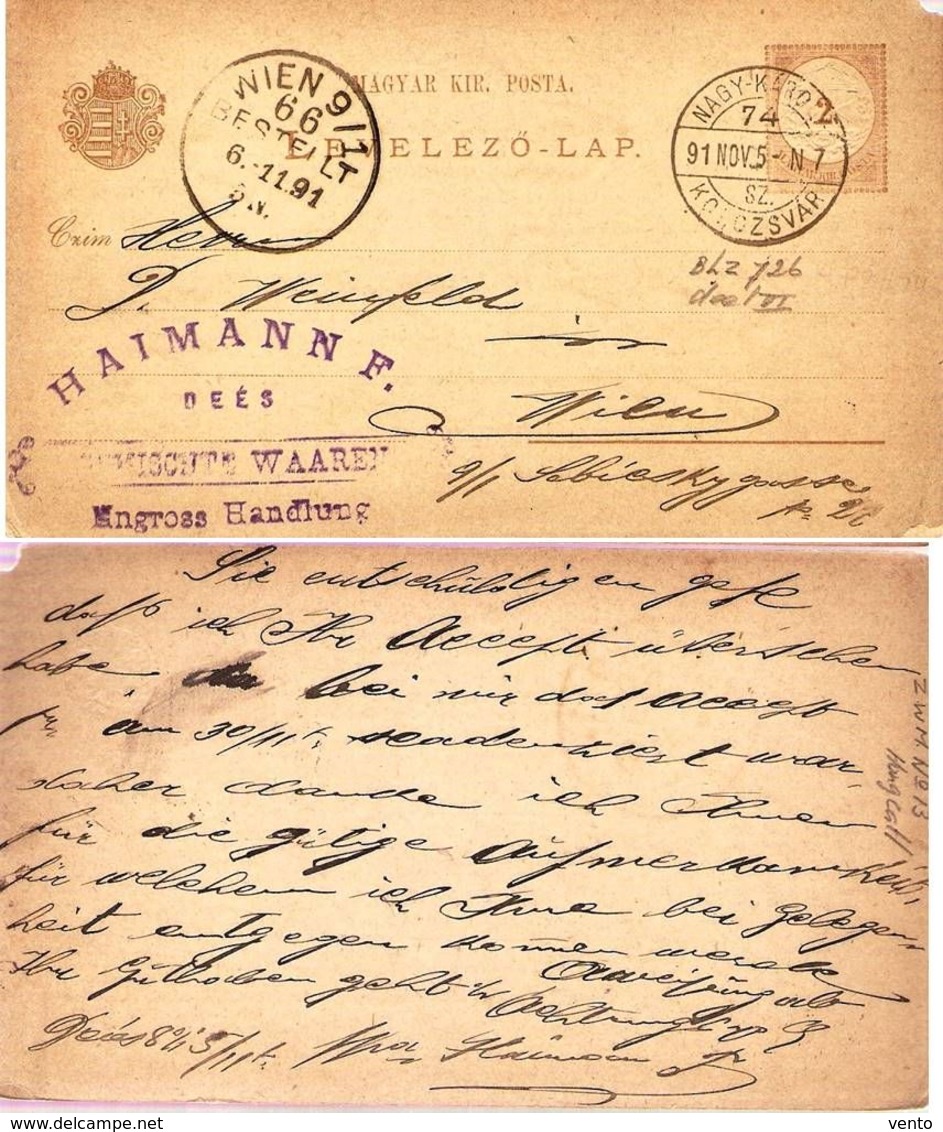 MAGYAR KIR. POSTA.
LEVELEZŐ-LAP.
WIEN 9/1
66
BESTELLT
6.-11.91
NAGY-KÁROLY
74
91 NOV. 5 - N 7
SZ.
KOLOZSVÁR
2
Czim Herrn
D. Weinfeld
in
Wien
9/1 Sobieskygasse
HAIMANN F.
DEÉS
GEMISCHTE WAAREN
Engross Handlung
Sie entschuldigen
daß ich Ihr Accept übersehen
habe bei mir das Accept
am 30/11 war
daher danke ich Ihnen
für die gütige Aufmerksamkeit,
für welchem ich Ihne bei Gelegen-
heit entgegen komen werde
Ihr Guthaben geht
Achtungsvoll
Deés 5/11
Haimann
vento